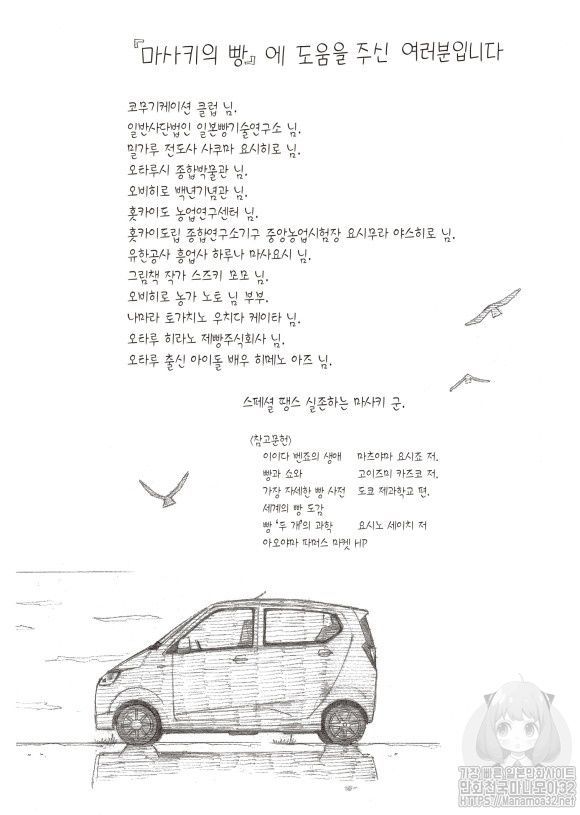 『마사키의 빵』에 도움을 주신 여러분입니다
코무기케이션 클럽 님.
일반사단법인 일본빵기술연구소 님.
밀가루 전도사 사쿠마 요시히로 님.
오타루시 종합박물관 님.
오비히로 백년기념관 님.
홋카이도 농업연구센터 님.
홋카이도립 종합연구소기구 중앙농업시험장 요시무라 야스히로 님.
유한공사 흥업사 하루나 마사요시 님.
그림책 작가 스즈키 모모 님.
오비히로 농가 노토 님 부부.
나마라 토가치노 우치다 케이타 님.
오타루 히라노 제빵주식회사 님.
오타루 출신 아이돌 배우 히메노 아즈 님.
스페셜 땡스 실존하는 마사키 군.
〈참고문헌〉
이이다 벤죠의 생애 마츠야마 요시죠 저.
빵과 쇼와 고이즈미 카즈코 저.
가장 자세한 빵 사전 도쿄 제과학교 편.
세계의 빵 도감
빵 '두 개'의 과학 요시노 세이치 저
아오야마 파머스 마켓 HP
가장 빠른 일본만화사이트
만화천국마나모아32
HTTPS://Manamoa32.net